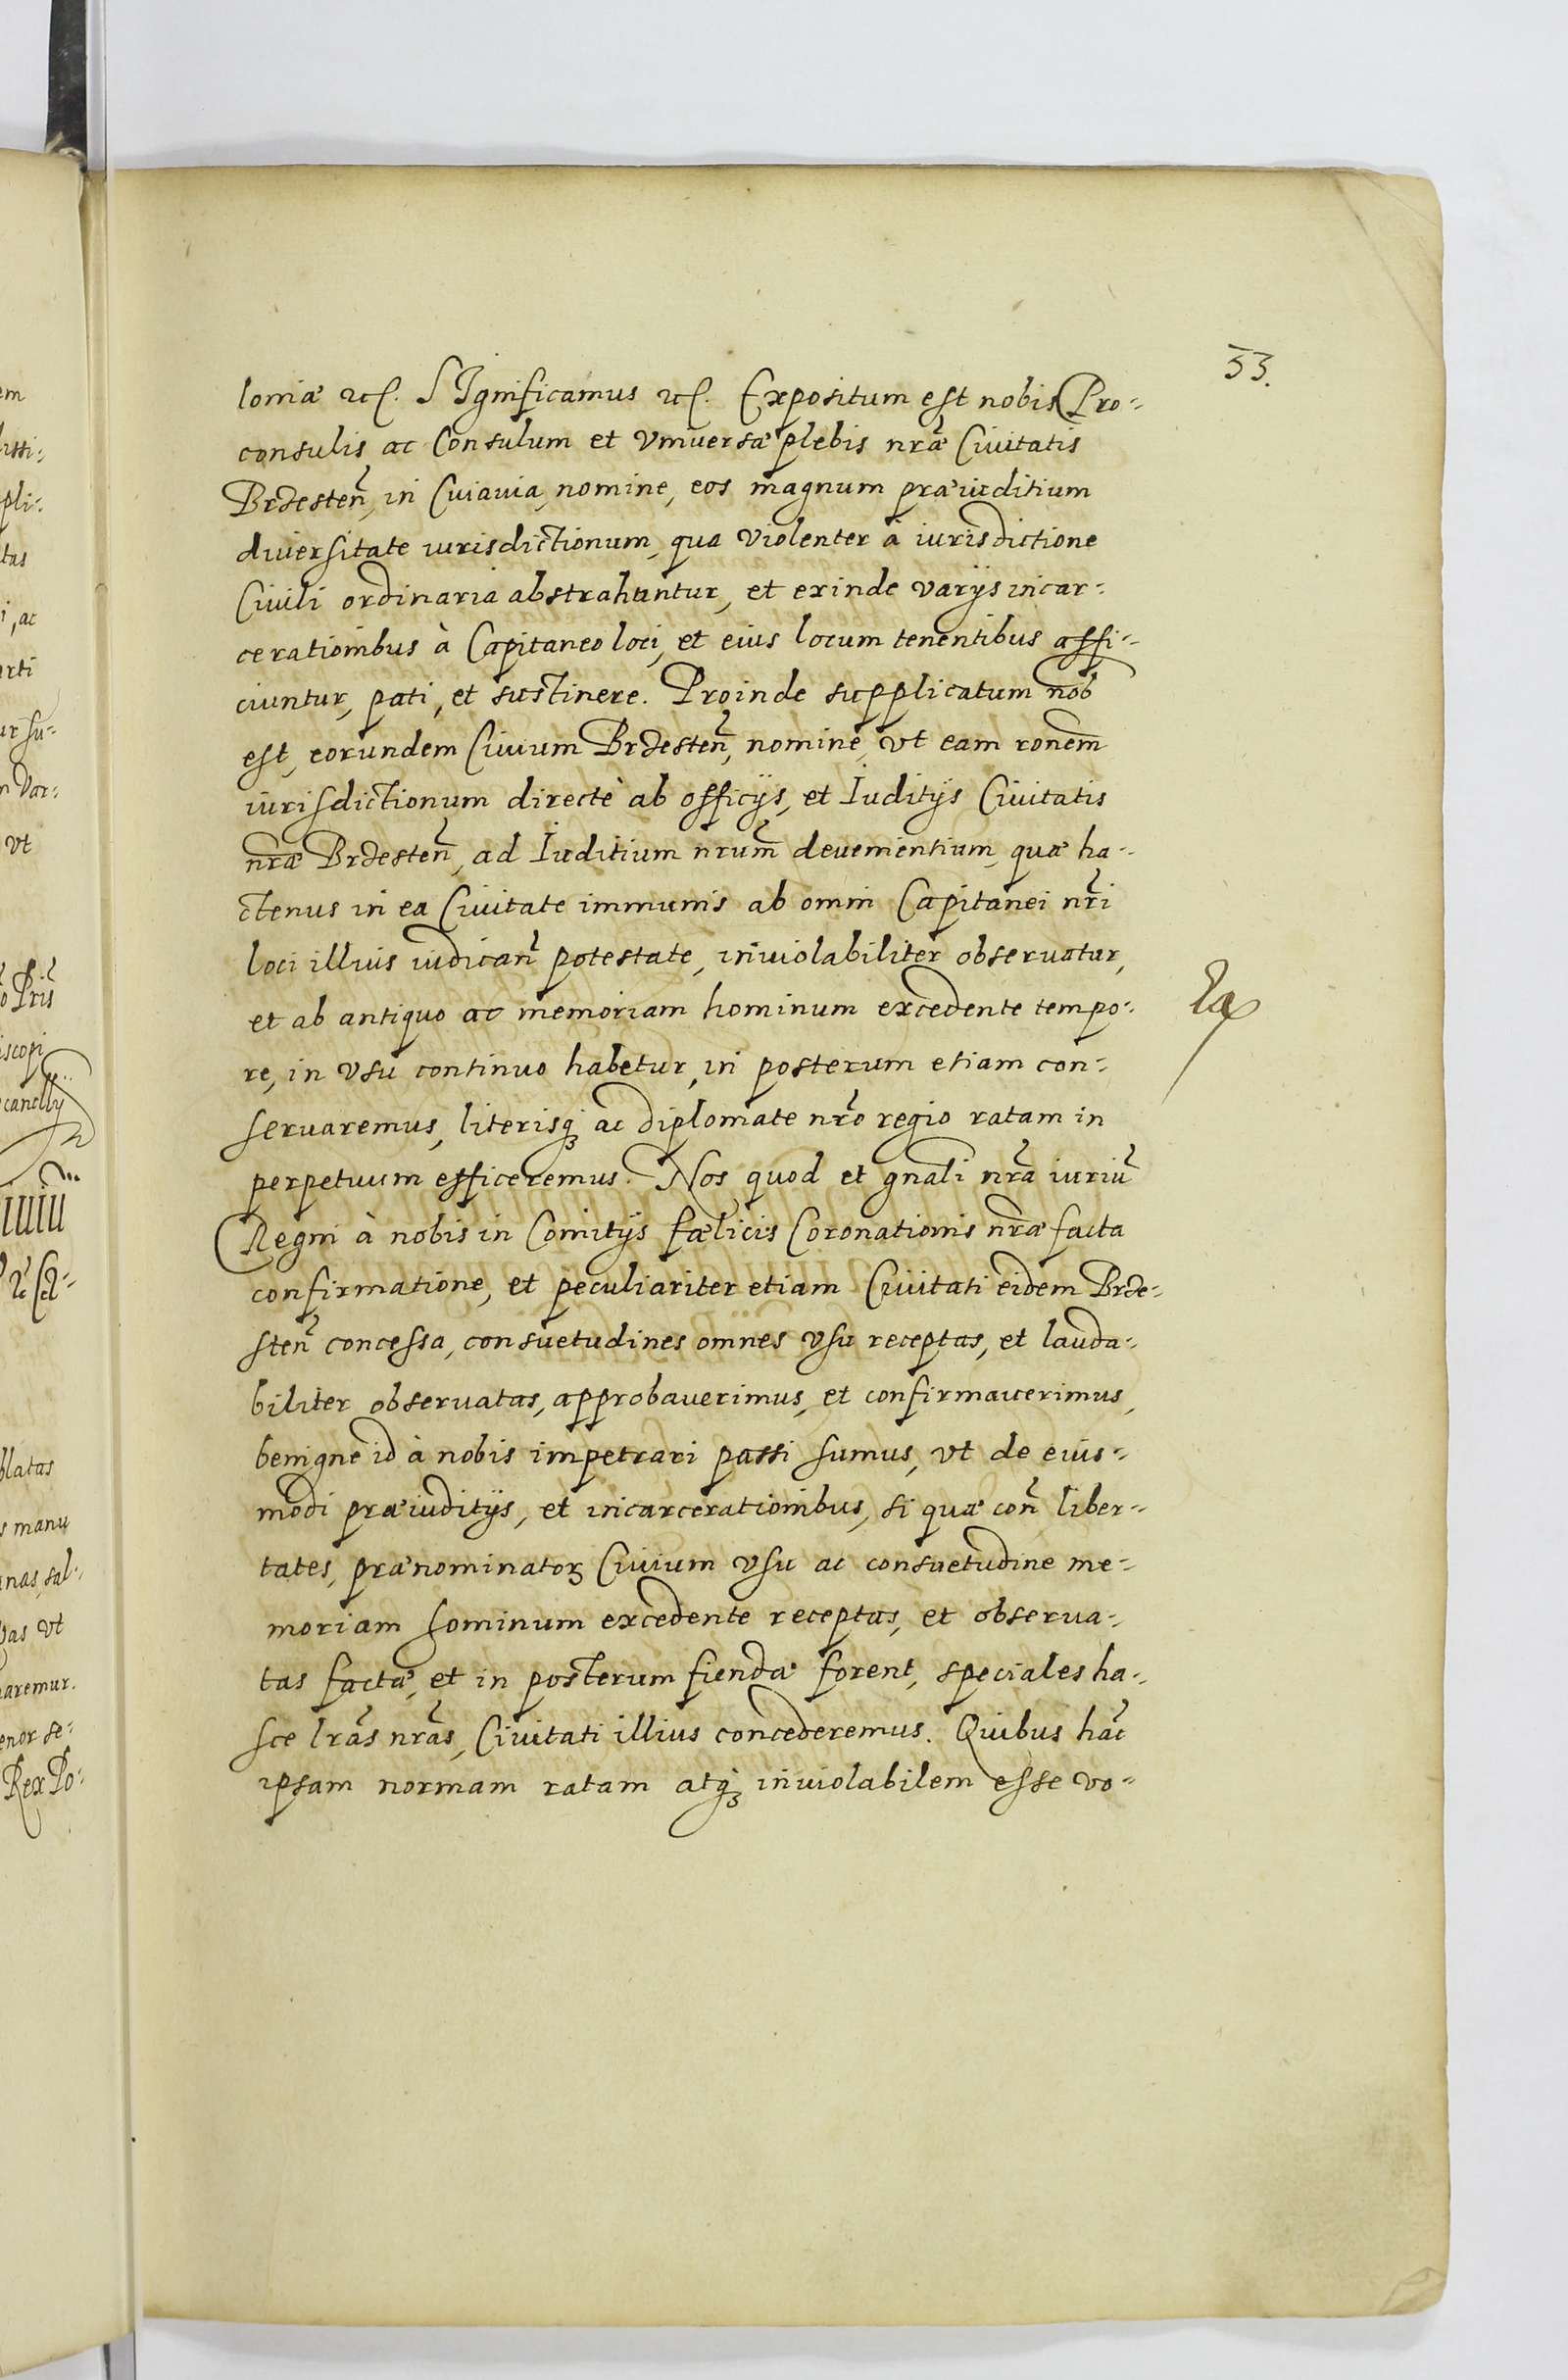 53.
loniæ etc. SIgnificamus etc. Expositum est nobis Pro-
consulis ac Consulum et Vniuersæ plebis nræ Ciuitatis
Brzesten̄, in Cuiauia, nomine, eos magnum præiuditium
diuersitate iurisdictionum, qua violenter à iurisdictione
Ciuili ordinaria abstrahuntur, et exinde varijs incar-
cerationibus à Capitaneo loci, et eius locum tenentibus affi-
ciuntur, pati, et sustinere. Proinde supplicatum nob
est, eorundem Ciuium Brzesten̄, nomine, vt eam ronem
iurisdictionum directè ab officijs, et Iuditijs Ciuitatis
nræ Brzesten̄, ad Iuditium nrum deuenientium, quæ ha-
ctenus in ea Ciuitate immunis ab omni Capitanei nri
loci illius iudican̄ potestate, inuiolabiliter obseruatur,
et ab antiquo ac memoriam hominum excedente tempo-
re, in vsu continuo habetur, in posterum etiam con-
seruaremus, literisq; ac diplomate nro regio ratam in
perpetuum efficeremus. Nos quod et gnali nra iuriū
Regni à nobis in Comitijs fælicis Coronationis nræ facta
confirmatione, et peculiariter etiam Ciuitati eidem Brze-
sten̄ concessa, consuetudines omnes vsu receptas, et lauda-
biliter obseruatas, approbauerimus, et confirmauerimus,
benigne id à nobis impetrari passi sumus, vt de eius-
modi præiuditijs, et incarcerationibus, si quæ con̄ liber-
tates, prænominatoꝝ Ciuium vsu ac consuetudine me-
moriam hominum excedente receptas, et obserua-
tas factæ, et in posterum fiendæ forent, speciales ha-
sce lras nras, Ciuitati illius concederemus. Quibus hāc
ipsam normam ratam atq; inuiolabilem esse vo-